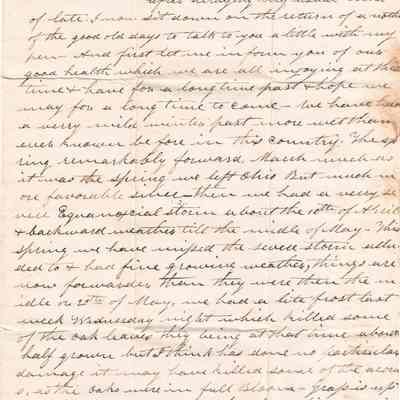 after
of late. I now sit down on the return of a
of the good old days to talk to you a little with my
pen - And first let me inform you of our
good health which we are all injoying at this
time & have for a long time past & hope we
may for a long time to come - We have had
a verry mild winter past more wet than
ever known before in this country. The sp
ring remarkably forward March much as
it was the spring we left Ohio But much m
ore favorable since - then we had a verry se
vere Equanoxcial storm about the 10th of April
& backward weather till the middle of May - This
spring we have missed the severe storm allu
ded to & had fine growing weather, things are
now forwarder than they were then the m
idle or 20th of May, we had a lite frost last
week Wednesday night which killed some
of the oak leaves they being at that time about
half grown but I think has done no particular
damage it may have killed some of the acorn
s, as the oaks were in full Bloom - grass is up